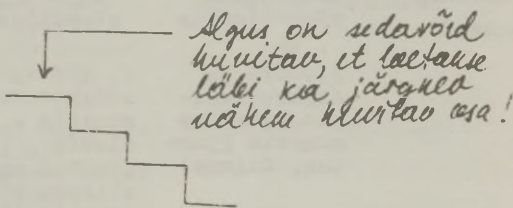 Algus on sedavõrd
huvitav, et loetakse
läbi ka järgnev
vähem huvitav osa!